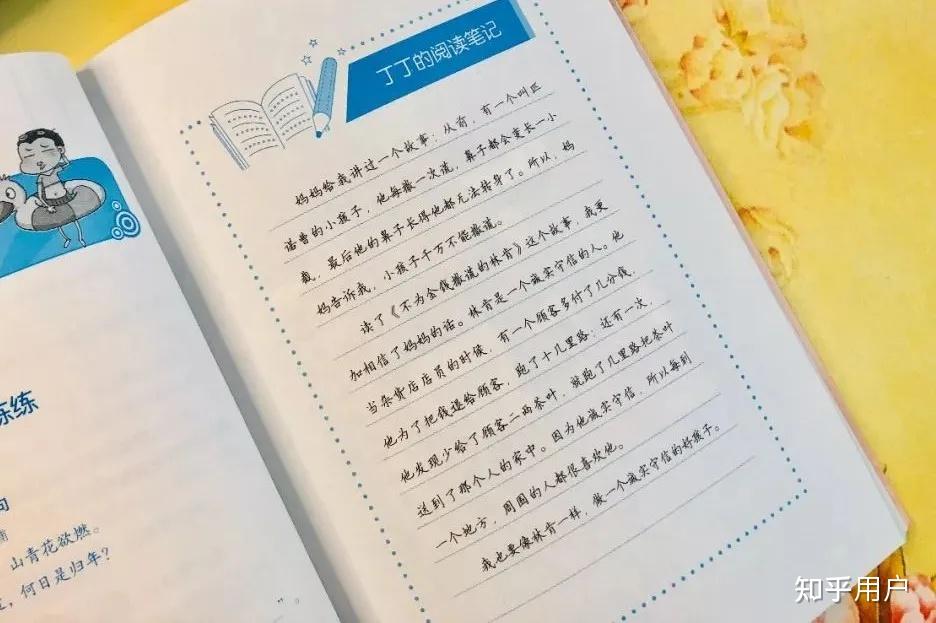 丁丁的阅读笔记
妈妈给我讲过一个故事：从前，有一个叫匹
诺曹的小孩子，他每撒一次谎，鼻子都会变长一小
截，最后他的鼻子长得他都无法转身了。所以，妈
妈告诉我，小孩子千万不能撒谎。
读了《不为金钱撒谎的林肯》这个故事，我更
加相信了妈妈的话。林肯是一个诚实守信的人。他
当杂货店店员的时候，有一个顾客多付了几分钱，
他为了把钱退给顾客，跑了十几里路；还有一次，
他发现少给了顾客二两茶叶，就跑了几里路把茶叶
送到了那个人的家中。因为他诚实守信，所以每到
一个地方，周围的人都很喜欢他。
我也要像林肯一样，做一个诚实守信的好孩子。
练练
句
山青花欲燃。
，何日是归年？
”。
知乎用户